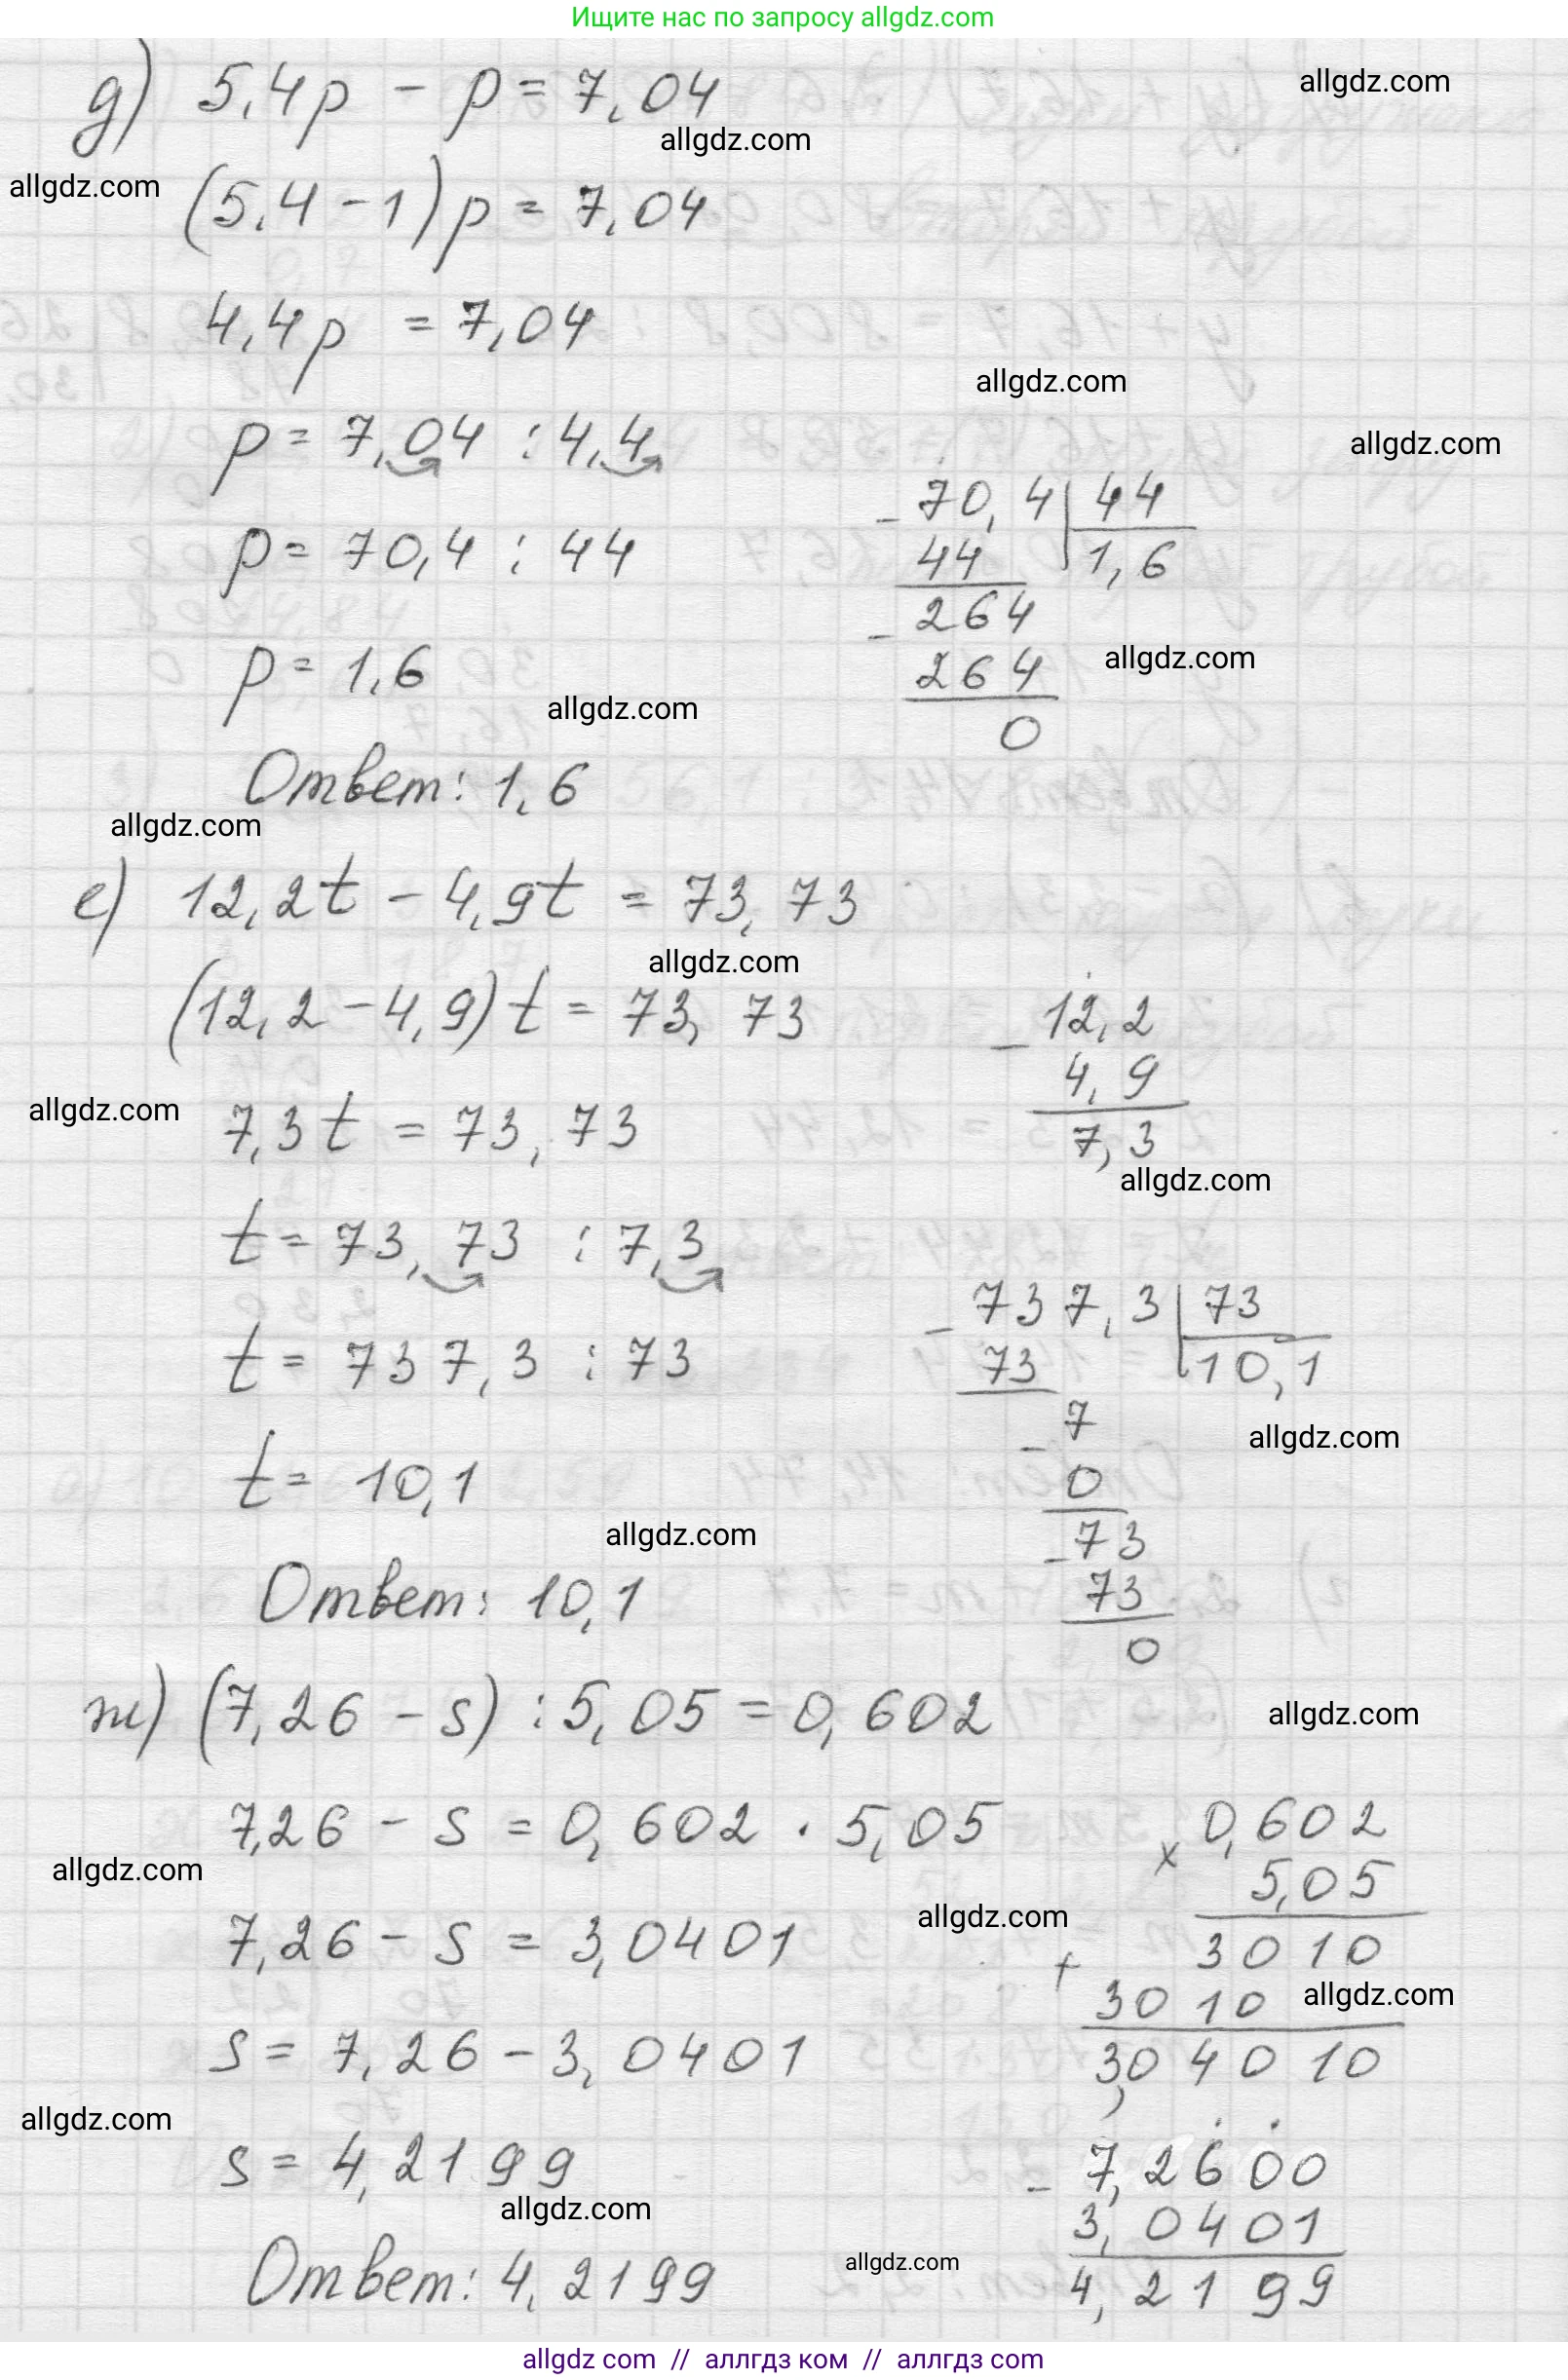 Ищите нас по запросу allgdz.com
д) 5,4p - p = 7,04
allgdz.com
allgdz.com
allgdz.com
(5,4 - 1)p = 7,04
4,4p = 7,04
allgdz.com
p = 7,04 : 4,4
allgdz.com
p = 70,4 : 44
p = 1,6
70,4 | 44
- 44 | 1,6
264
- 264
0
allgdz.com
allgdz.com
Ответ: 1,6
allgdz.com
е) 12,2t - 4,9t = 73,73
allgdz.com
(12,2 - 4,9)t = 73,73
- 12,2
4,9
7,3
allgdz.com
7,3t = 73,73
allgdz.com
t = 73,73 : 7,3
t = 737,3 : 73
- 737,3 | 73
73 | 10,1
- 7
0
- 73
73
0
allgdz.com
t = 10,1
allgdz.com
Ответ: 10,1
ж) (7,26 - s) : 5,05 = 0,602
allgdz.com
7,26 - s = 0,602 · 5,05
allgdz.com
allgdz.com
7,26 - s = 3,0401
× 0,602
5,05
3010
+ 3010
3,04010
allgdz.com
s = 7,26 - 3,0401
allgdz.com
s = 4,2199
- 7,2600
3,0401
4,2199
allgdz.com
allgdz.com
Ответ: 4,2199
allgdz com // аллгдз ком // аллгдз com